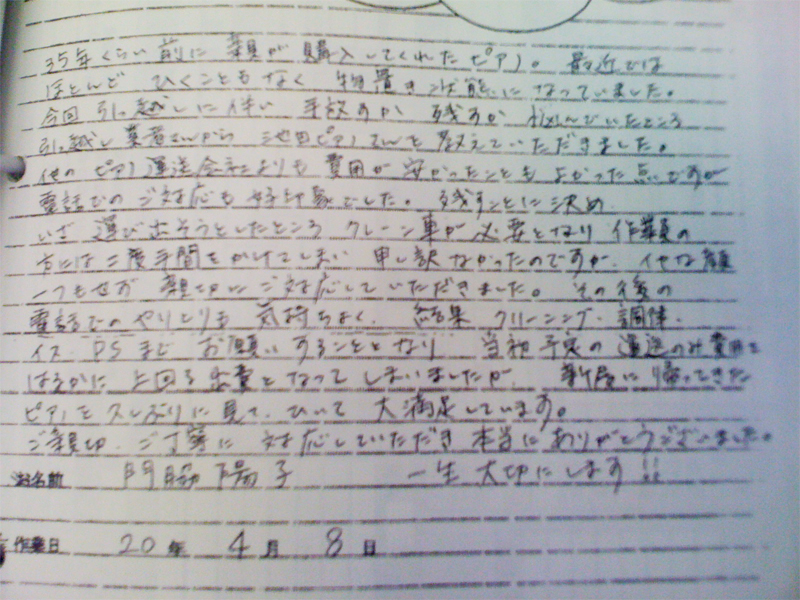 35年くらい前に親が購入してくれたピアノ。最近では
ほとんどひくこともなく物置き状態になっていました。
今回引っ越しに伴い手放すか残すか悩んでいたところ
引っ越し業者さんから池田ピアノさんと教えていただきました。
他のピアノ運送会社よりも費用が安かったこともよかった点ですが
電話でのご対応も好印象でした。残すことに決め
いざ運び出そうとしたところクレーン車が必要となり作業員の
方には二度手間をかけてしまい申し訳なかったのですが、イヤな顔
一つもせず親切にご対応していただきました。その後の
電話でのやりとりも気持ちよく、結果クリーニング、調律、
イス、DSまでお願いすることとなり当初予定の運送のみ費用を
はるかに上回る出費となってしまいましたが、新居に帰ってきた
ピアノを久しぶりに見て、ひいて大満足しています。
ご親切、ご丁寧に対応していただき本当にありがとうございました。
お名前 門脇陽子 一生大切にします!!
作業日 20年 4月 8日